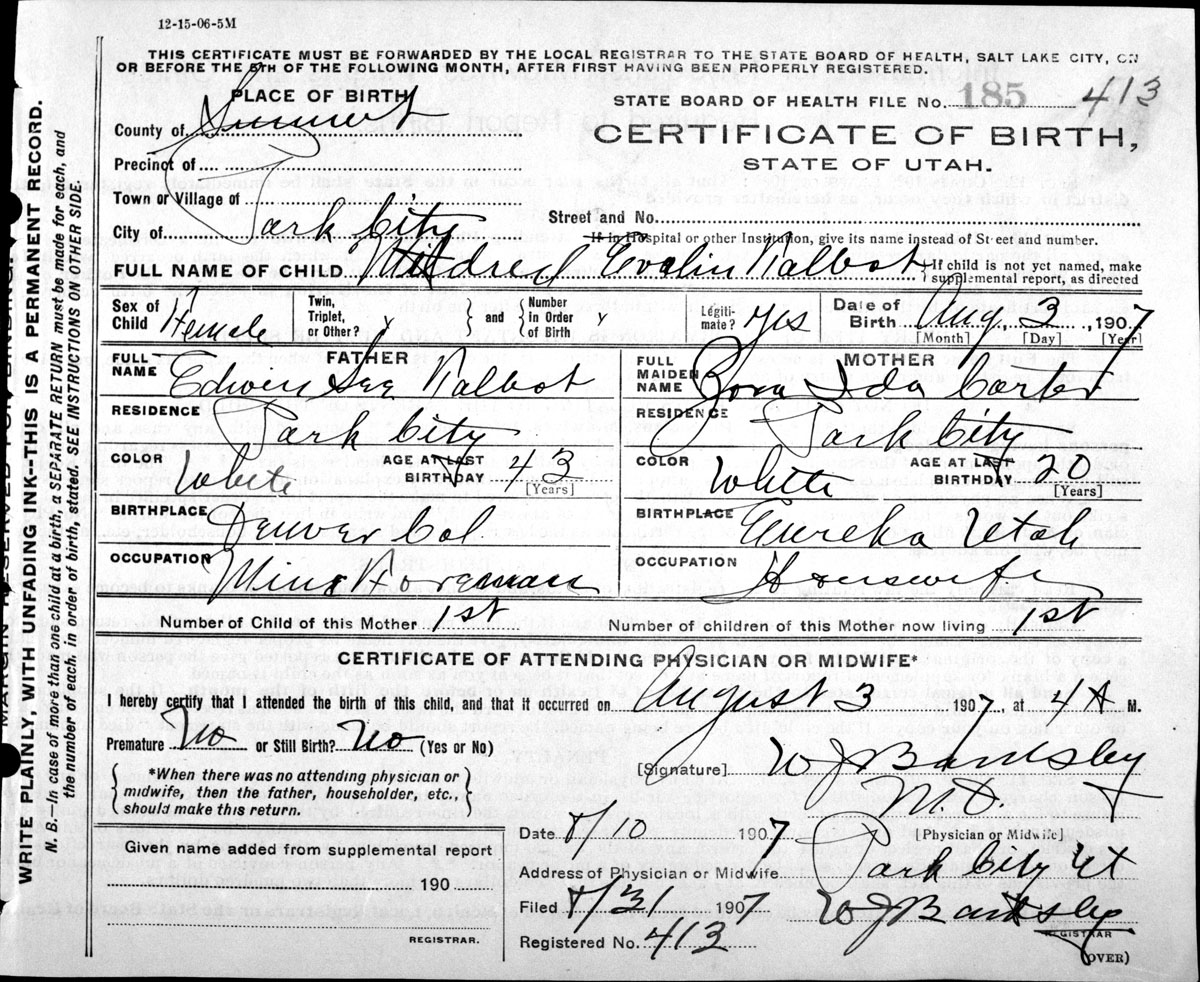 12-15-06-5M
THIS CERTIFICATE MUST BE FORWARDED BY THE LOCAL REGISTRAR TO THE STATE BOARD OF HEALTH, SALT LAKE CITY, ON
OR BEFORE THE 5TH OF THE FOLLOWING MONTH, AFTER FIRST HAVING BEEN PROPERLY REGISTERED.
PLACE OF BIRTH
STATE BOARD OF HEALTH FILE No. 185 413
County of Summit
CERTIFICATE OF BIRTH,
STATE OF UTAH.
Precinct of
Town or Village of
City of Park City
Street and No.
If in Hospital or other Institution, give its name instead of Street and number.
FULL NAME OF CHILD Mildred Evelin Talbot
If child is not yet named, make
supplemental report, as directed
Sex of Child Female
Twin, Triplet, or Other?
and
Number in Order of Birth
Legiti-mate? yes
Date of Birth Aug. 3, 1907
[Month] [Day] [Year]
FATHER
FULL NAME Edwin Talbot
RESIDENCE Park City
COLOR White
AGE AT LAST BIRTHDAY 43
[Years]
BIRTHPLACE Denver Col.
OCCUPATION Mine Foreman
MOTHER
FULL MAIDEN NAME Ida Carter
RESIDENCE Park City
COLOR White
AGE AT LAST BIRTHDAY 20
[Years]
BIRTHPLACE Eureka Utah
OCCUPATION Housewife
Number of Child of this Mother 1st
Number of children of this Mother now living 1st
CERTIFICATE OF ATTENDING PHYSICIAN OR MIDWIFE*
I hereby certify that I attended the birth of this child, and that it occurred on August 3 1907, at 4 A M.
Premature No or Still Birth? No (Yes or No)
*When there was no attending physician or
midwife, then the father, householder, etc.,
should make this return.
[Signature] W J Bardsley
M.D.
[Physician or Midwife]
Given name added from supplemental report
190
REGISTRAR.
Date 8/10 1907
Address of Physician or Midwife Park City Ut
Filed 8/31 1907 W J Bardsley
REGISTRAR
Registered No. 413
(OVER)
MARGIN RESERVED FOR BINDING.
WRITE PLAINLY WITH UNFADING INK--THIS IS A PERMANENT RECORD.
N. B.—In case of more than one child at a birth, a SEPARATE RETURN must be made for each, and
the number of each, in order of birth, stated. SEE INSTRUCTIONS ON OTHER SIDE.